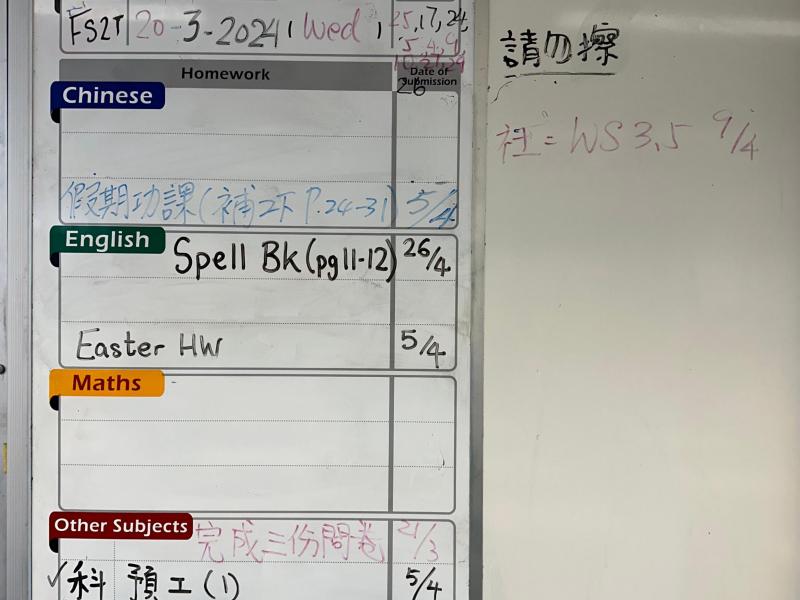 FS2T 20-3-2024 (Wed)
請勿擦
Homework
Date of Submission
26
Chinese
社 = WS 3,5 9/4
假期功課(補工下 P.24-31) 5/4
English
Spell Bk (pg 11-12) 26/4
Easter HW 5/4
Maths
Other Subjects
完成三份問卷 21/3
✓科 預工(1) 5/4